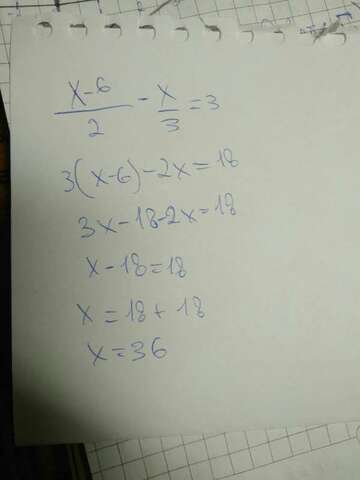 x-6/2 - x/3 = 3
3(x-6)-2x=18
3x-18-2x=18
x-18=18
x=18+18
x=36